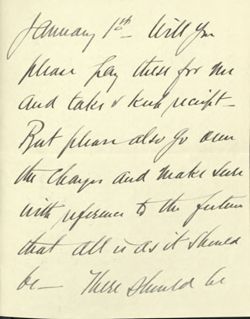 January 1st— Will you
please pay these for me
and take & keep receipt—
But please also go over
the charges and make sure
with reference to the future
that all is as it should
be— There should be